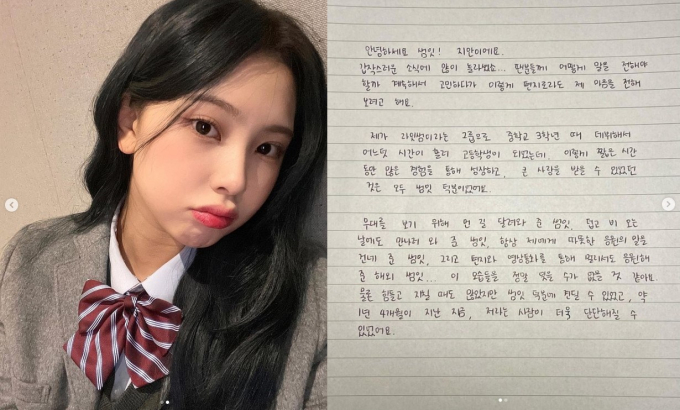 안녕하세요 범잇! 지민이에요.
갑작스러운 소식에 많이 놀라셨죠... 팬분들께 어떻게 말을 전해야
할까 계속해서 고민하다가 이렇게 편지로라도 제 마음을 전해
보려고 해요.
제가 라잇썸이라는 그룹으로 중학교 3학년 때 데뷔해서
어느덧 시간이 흘러 고등학생이 되었는데, 이렇게 짧은 시간
동안 많은 경험을 통해 성장하고, 큰 사랑을 받을 수 있었던
것은 모두 썸잇 덕분이었어요.
무대를 보기 위해 먼 길 달려와 준 썸잇, 덥고 비 오는
날에도 만나러 와 준 썸잇, 항상 제에게 따뜻한 응원의 말을
건네 준 썸잇, 그리고 편지와 영상통화를 통해 멀리서도 응원해
준 해외 썸잇... 이 모습들을 정말 잊을 수가 없을 것 같아요.
물론 힘들고 지칠 때도 많았지만 썸잇 덕분에 견딜 수 있었고, 약
1년 4개월이 지난 지금, 저라는 사람이 더욱 단단해질 수
있었어요.